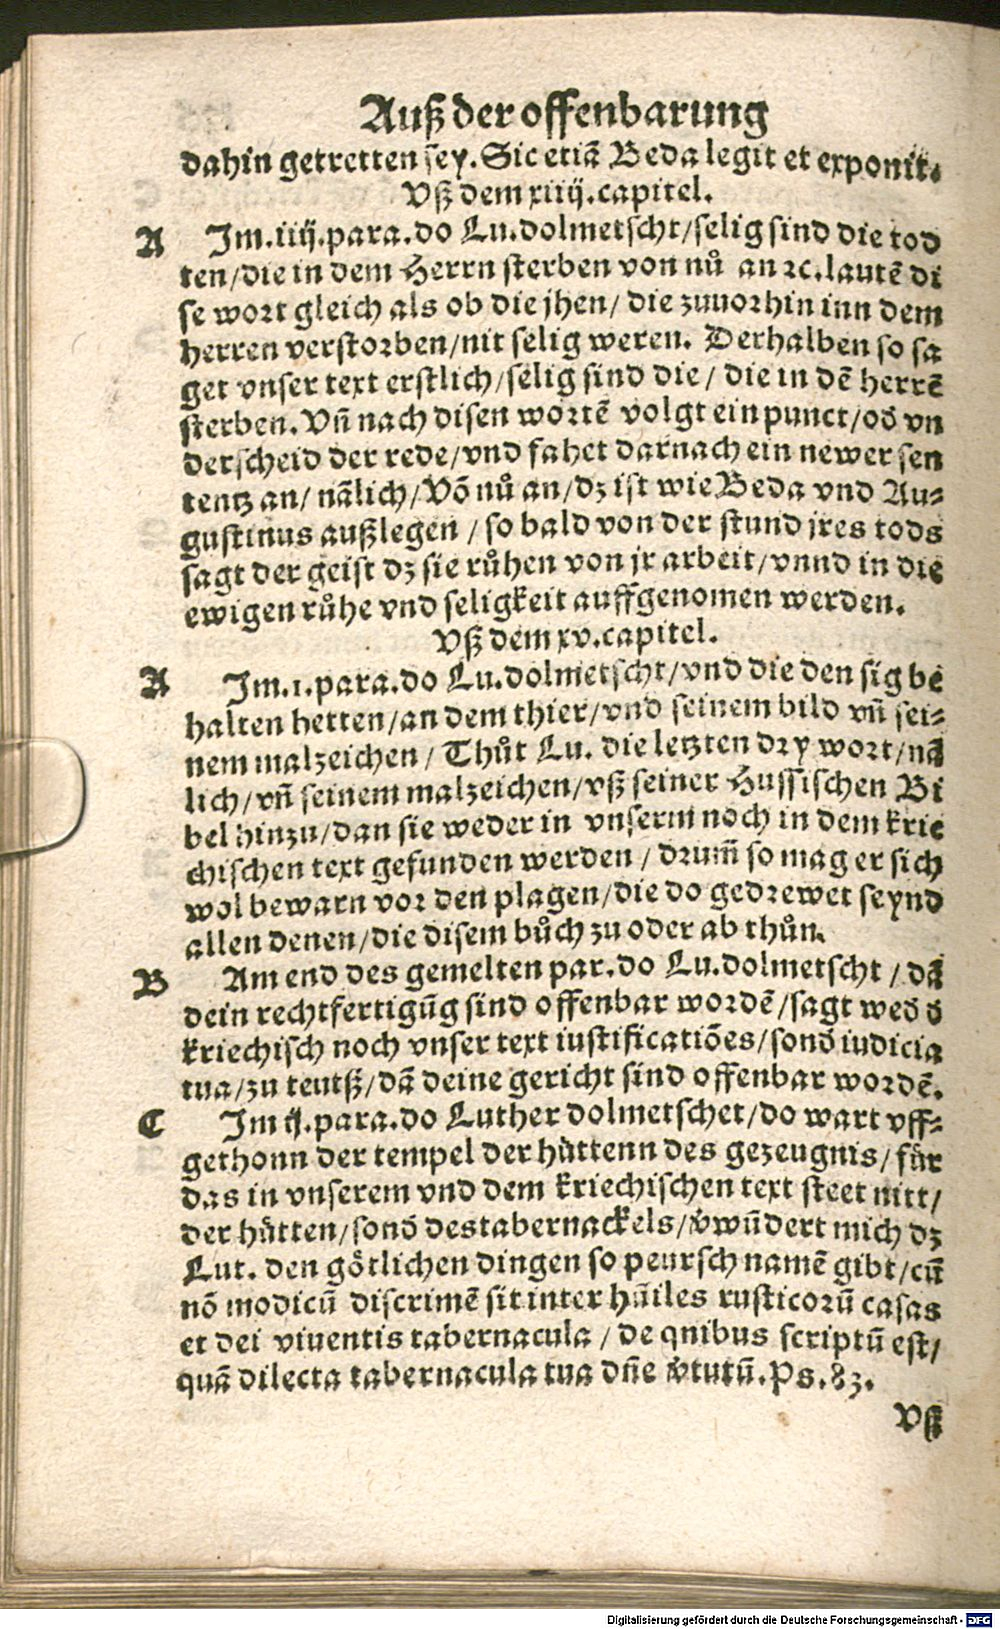 Auß der offenbarung
dahin getretten sey. Sic etiā Beda legit et exponit.
Vß dem xiiij. capitel.
A Im. iiij. para. do Lu. dolmetscht / selig sind die tod
ten / die in dem Herrn sterben von nů an ꝛc. lautē di
se wort gleich als ob die jhen / die zuuorhin inn dem
herren verstorben / nit selig weren. Derhalben so sa
get vnser text erstlich / selig sind die / die in dē herrē
sterben. Vñ nach disen wortē volgt ein punct / oď vn
derscheid der rede / vnd fahet darnach ein newer sen
tentz an / nālich / Võ nů an / dz ist wie Beda vnd Au⸗
gustinus außlegen / so bald von der stund jres tods
sagt der geist dz sie růhen von jr arbeit / vnnd in die
ewigen růhe vnd seligkeit auffgenomen werden.
Vß dem xv. capitel.
A Im. 1. para. do Lu. dolmetscht / vnd die den sig be
halten hetten / an dem thier / vnd seinem bild vñ sei⸗
nem malzeichen / Thůt Lu. die letzten dry wort / nā
lich / vñ seinem malzeichen / vß seiner Hussischen Bi
bel hinzu / dan sie weder in vnserm noch in dem krie
chischen text gefunden werden / drum̄ so mag er sich
wol bewarn vor den plagen / die do gedrewet seynd
allen denen / die disem bůch zu oder ab thůn.
B Am end des gemelten par. do Lu. dolmetscht / dā
dein rechtfertigūg sind offenbar wordē / sagt weď ď
kriechisch noch vnser text iustificatiōes / sonď iudicia
tua / zu teutß / dā deine gericht sind offenbar wordē.
C Im ij. para. do Luther dolmetschet / do wart vff⸗
gethonn der tempel der hüttenn des gezeugnis / für
das in vnserem vnd dem kriechischen text steet nitt /
der hütten / sonď des tabernackels / v̄wūdert mich dz
Lut. den götlichen dingen so peursch namē gibt / cū
nō modicū discrimē sit inter hūiles rusticorū casas
et dei viuentis tabernacula / de qnibus scriptū est /
quā dilecta tabernacula tua dñe v̄tutū. Ps. 83.
Vß
Digitalisierung gefördert durch die Deutsche Forschungsgemeinschaft - DFG